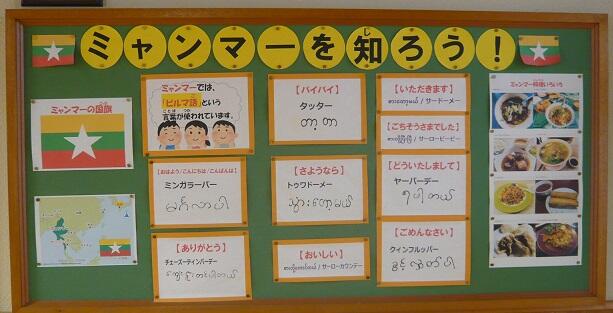 ミャンマーを知ろう！
し
ミャンマーの国旗
ミャンマーでは、
「ビルマ語」という
言葉が使われています。
【おはよう/こんにちは/こんばんは】
ミンガラーバー
မင်္ဂလာပါ
【ありがとう】
チェーズーティンバーデー
ကျေးဇူးတင်ပါတယ်
【バイバイ】
タッター
တာ့တာ
【さようなら】
トゥワドーメー
သွားတော့မယ်
【おいしい】
サーローカウンデー
【いただきます】
/ サードーメー
【ごちそうさまでした】
/ サーロービービー
【どういたしまして】
ヤーバーデー
ရပါတယ်
【ごめんなさい】
クインフルッパー
ခွင့်လွှတ်ပါ
ミャンマー料理いろいろ